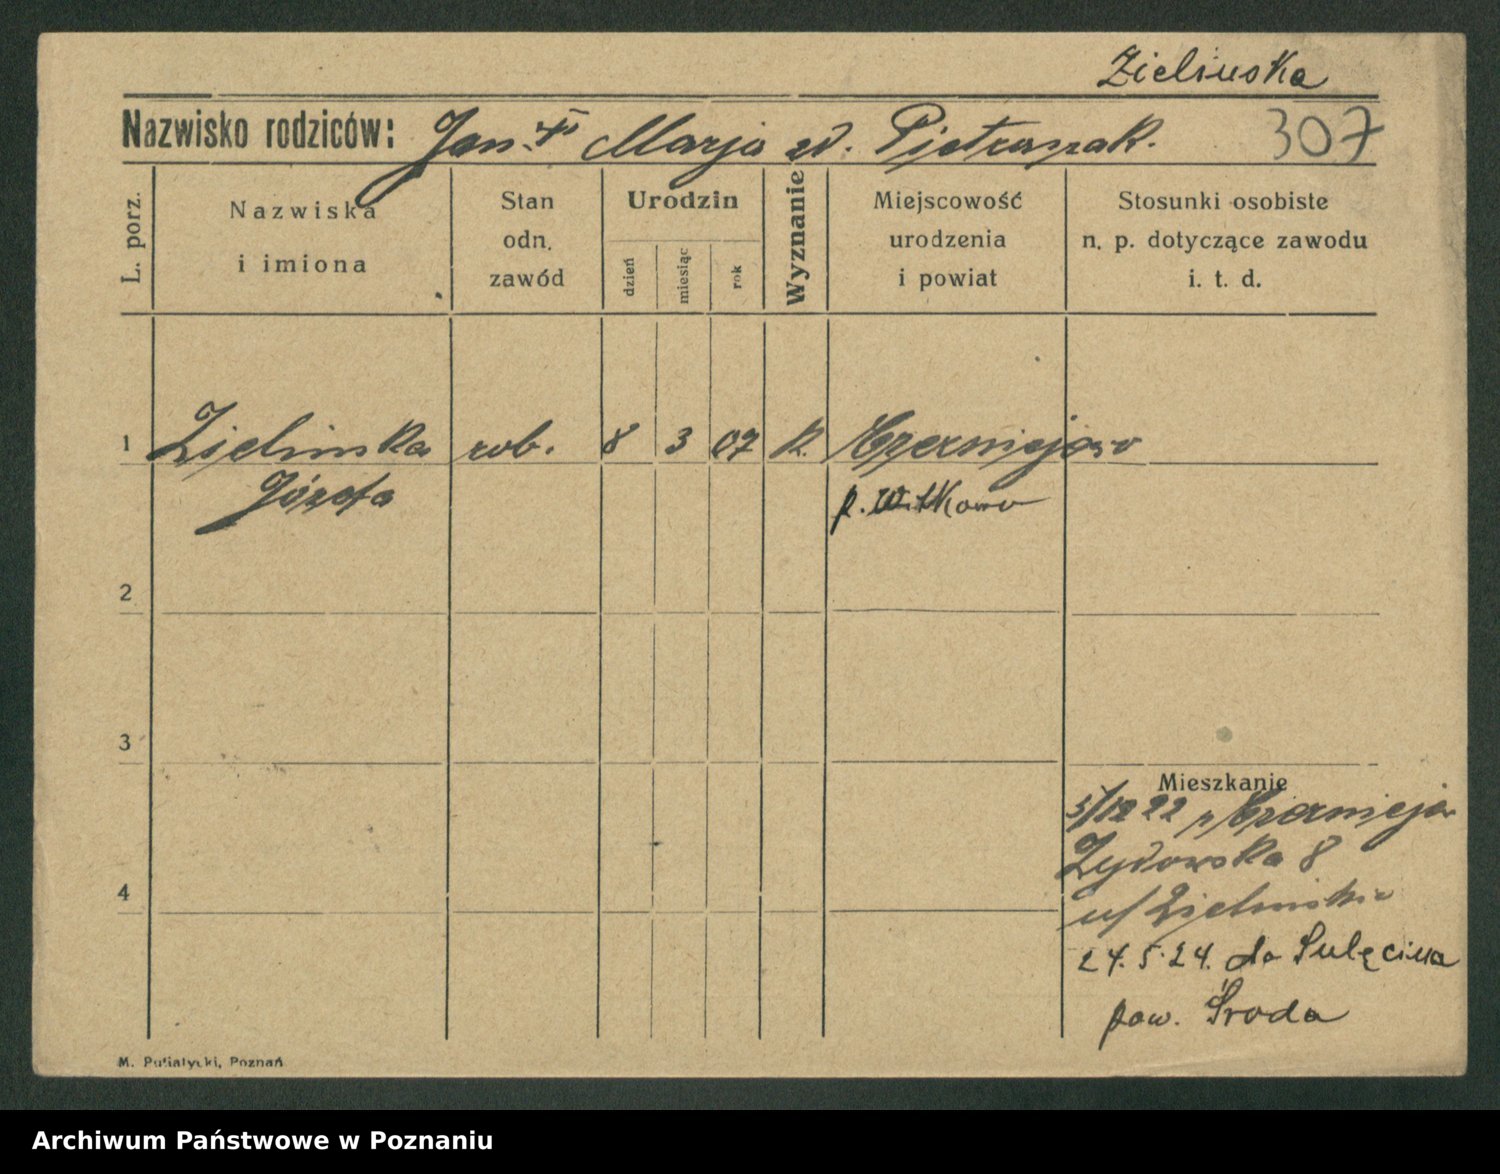 Zielinska
Nazwisko rodziców: Jan Marja d. Pietraszak. 307
L. porz.
Nazwiska
i imiona
Stan
odn.
zawód
Urodzin
dzień
miesiąc
rok
Wyznanie
Miejscowość
urodzenia
i powiat
Stosunki osobiste
n. p. dotyczące zawodu
i. t. d.
1 Zielinska rob. 8 3 07 k. Czerniejewo
Józefa p. Witkowo
2
3
Mieszkanie
5/12 22 Czerniejew
Zydowska 8
u/Zielinskie
4
24.5.24. do Sulęcina
pow. Środa
M. Putiatycki, Poznań
Archiwum Państwowe w Poznaniu